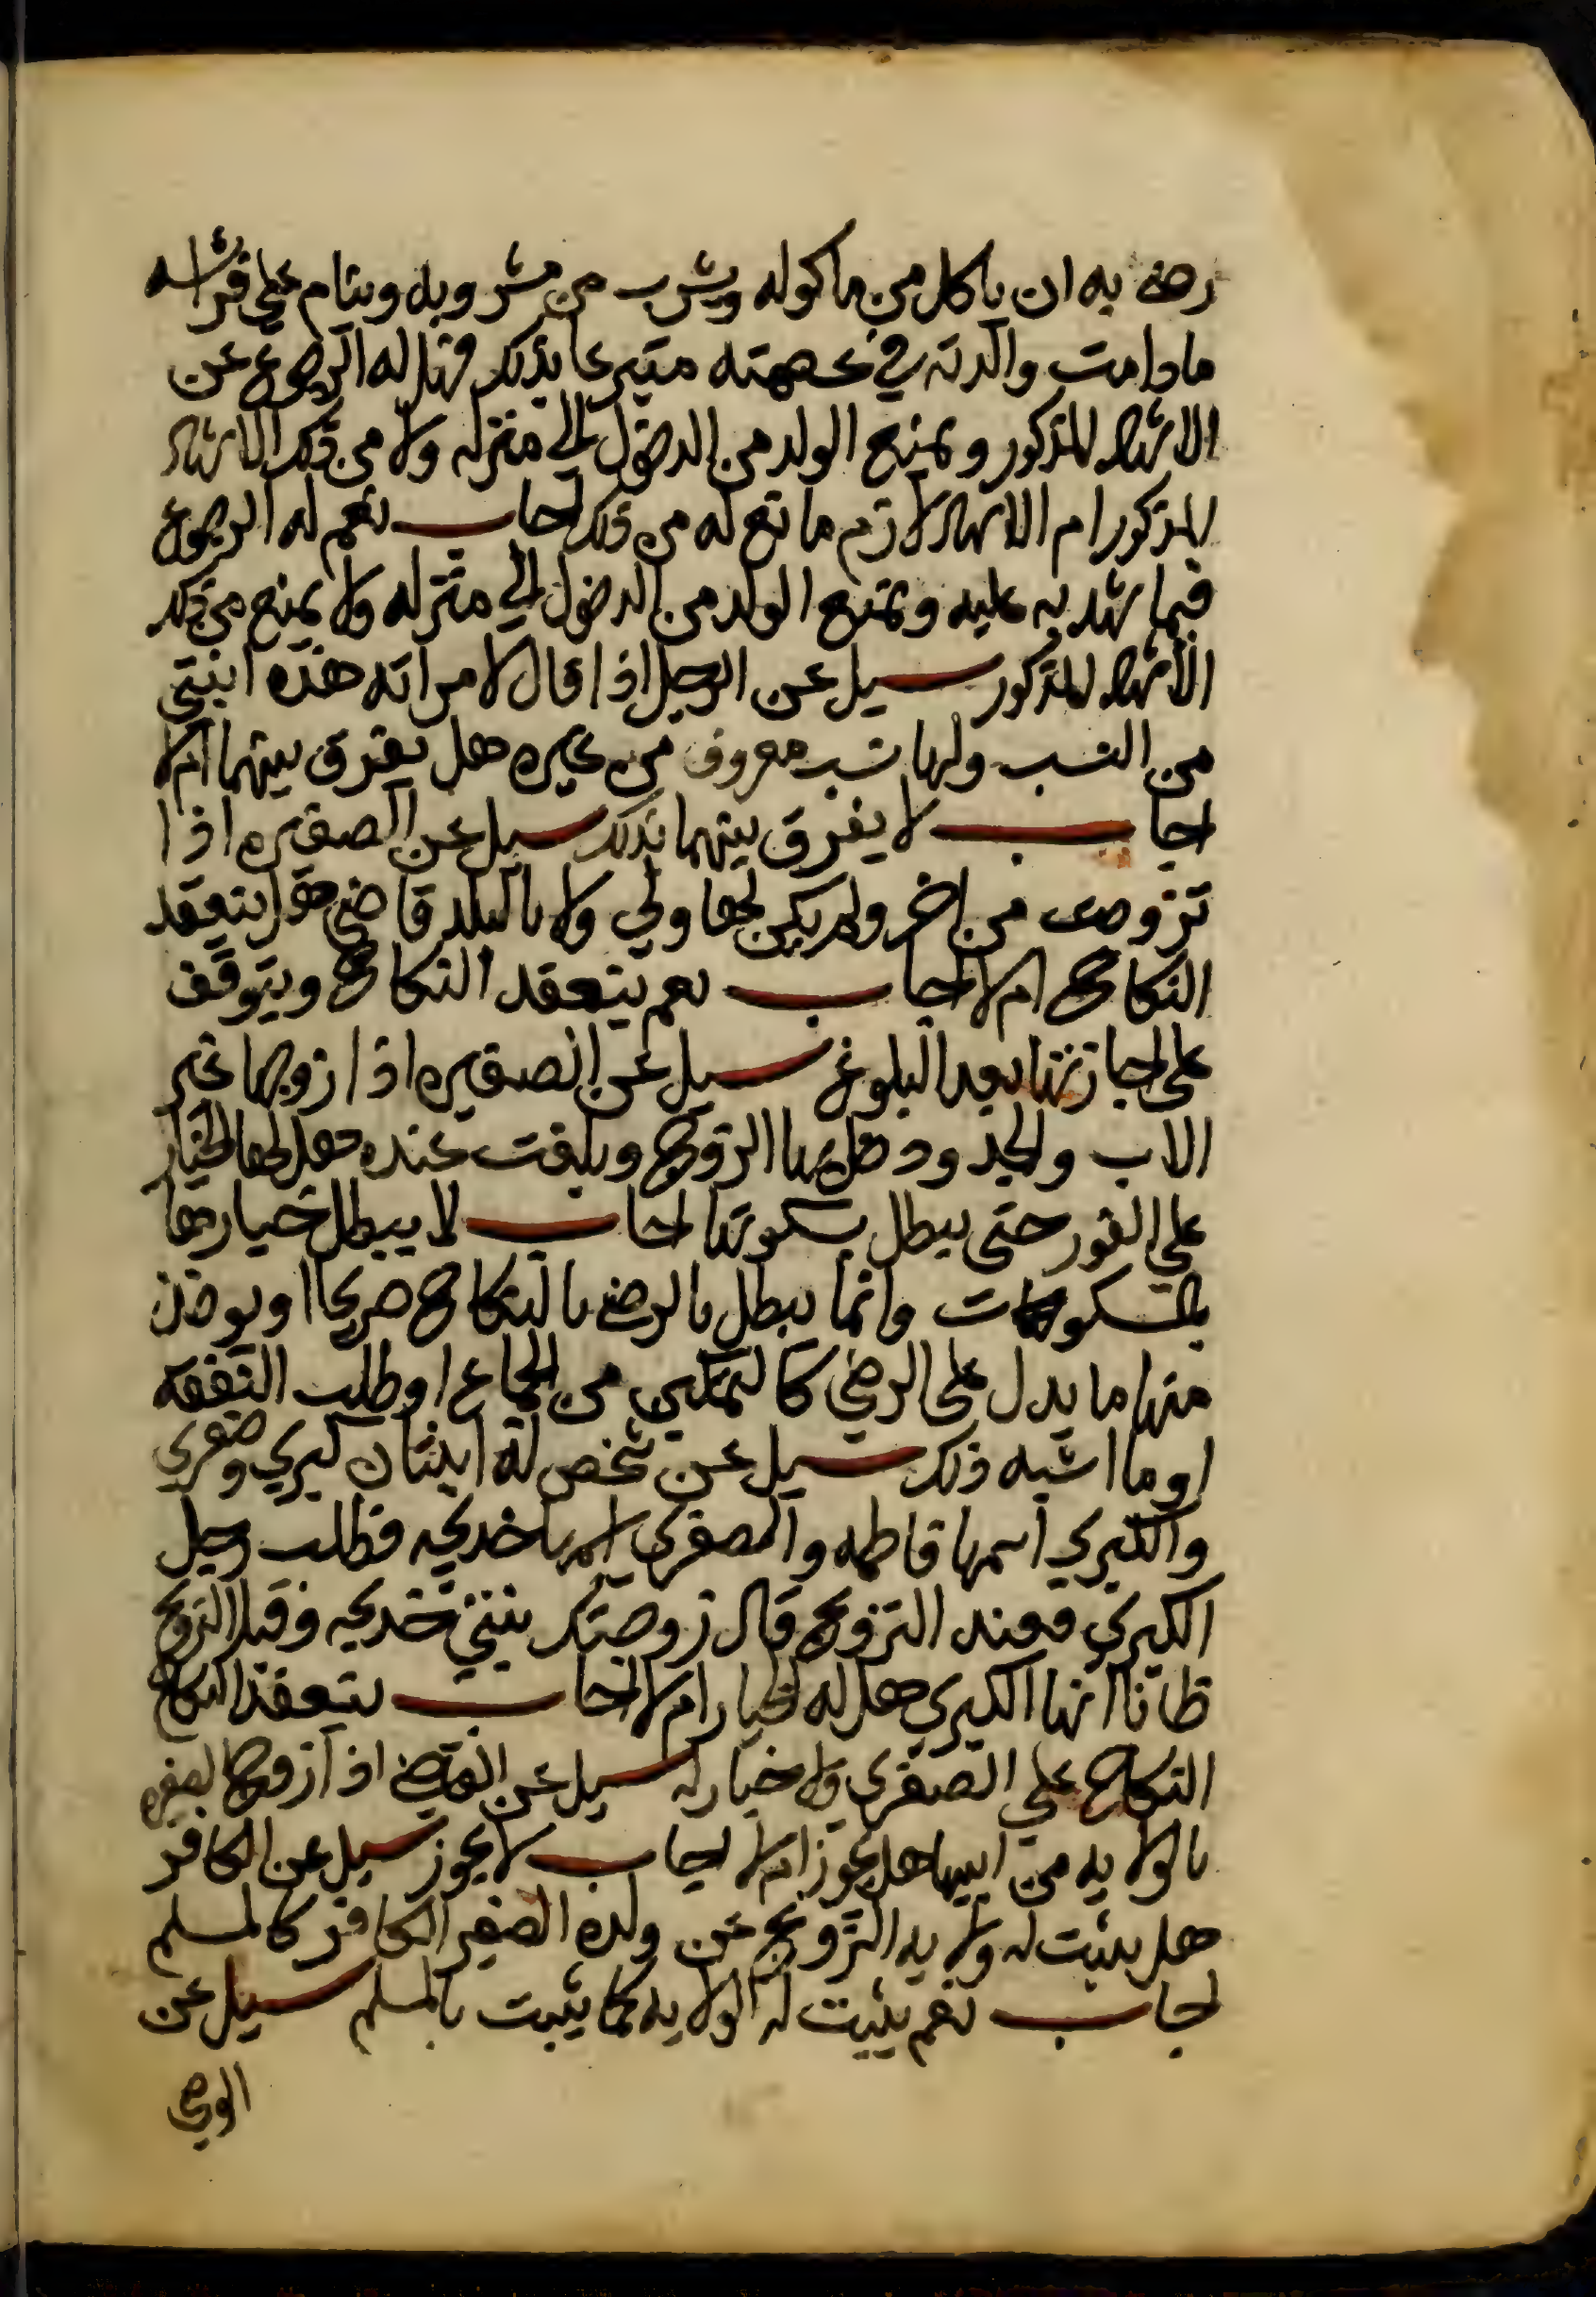 رضى به ان ياكل من ماكوله ويشرب من مشروبه وينام على فراشه
مادامت والدته في عصمته متبرعا بذلك فهل له الرجوع عن
الاشهاد المذكور ويمنع الولد من الدخول الي منزله ولا من ذلك الاشهاد
المذكور ام الاشهاد لازم مانع له من ذلك اجاب نعم له الرجوع
فيما شهد به عليه ويمنع الولد من الدخول الي منزله ولا يمنع من ذلك
الاشهاد المذكور سيل عن الرجل اذا قال لامراته هذه ابنتي
من النسب ولها نسب معروف من غيره هل يفرق بينهما ام لا
اجاب لا يفرق بينهما بذلك سيل عن الصغيره اذا
تزوجت من اخر ولم يكن لها ولي ولا بالبلد قاضي هل ينعقد
النكاح ام لا اجاب نعم ينعقد النكاح ويتوقف
على اجازتها بعد البلوغ سيل عن الصغيره اذا زوجها غير
الاب والجد ودخل بها الزوج وبلغت عنده هل لها الخيار
علي الفور حتى يبطل بسكوتها اجاب لا يبطل خيارها
بالسكوت وانما يبطل بالرضى بالنكاح صريحا او يوخذ
منها ما يدل على الرضي كالتمكين من الجماع او طلب النفقه
او ما اشبه ذلك سيل عن شخص له ابنتان كبري وصغري
والكبري اسمها فاطمه والصغري اسمها خديجه فطلب رجل
الكبري فعند التزويج قال زوجتك بنتي خديجه وقبل الزوج
ظانا انها الكبري هل له الخيار ام لا اجاب ينعقد النكاح
النكاح علي الصغري ولا خيار له سيل عن القاضي اذا زوج الصغيره
بالولايه من ابيها هل يجوز ام لا اجاب لا يجوز سيل عن الكافر
هل يثبت له ولايه التزويج عن ولده الصغير الكافر كالمسلم
اجاب نعم يثبت له الولايه كما يثبت بالمسلم سيل عن
الوصي